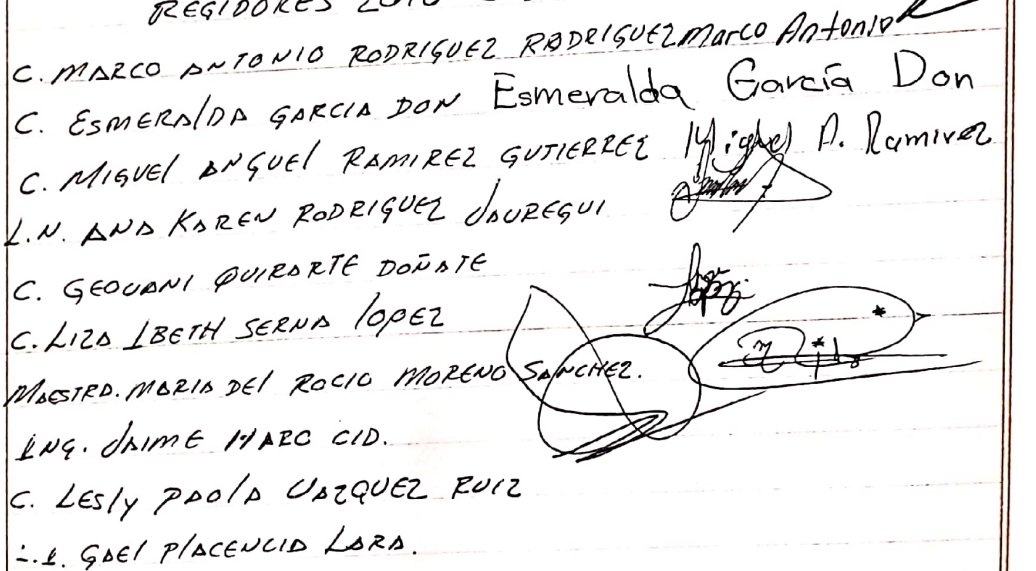 REGIDORES
C. MARCO ANTONIO RODRIGUEZ RODRIGUEZ Marco Antonio
C. ESMERALDA GARCIA DON Esmeralda García Don
C. MIGUEL ANGUEL RAMIREZ GUTIERREZ Miguel A. Ramirez
L.N. ANA KAREN RODRIGUEZ JAUREGUI
C. GEOVANI QUIRARTE DOÑATE
C. LIZA IBETH SERNA LOPEZ
MAESTRA. MARIA DEL ROCIO MORENO SANCHEZ.
ING. JAIME HARO CID.
C. LESLY PAOLA VAZQUEZ RUIZ
GAEL PLACENCIA LARA.